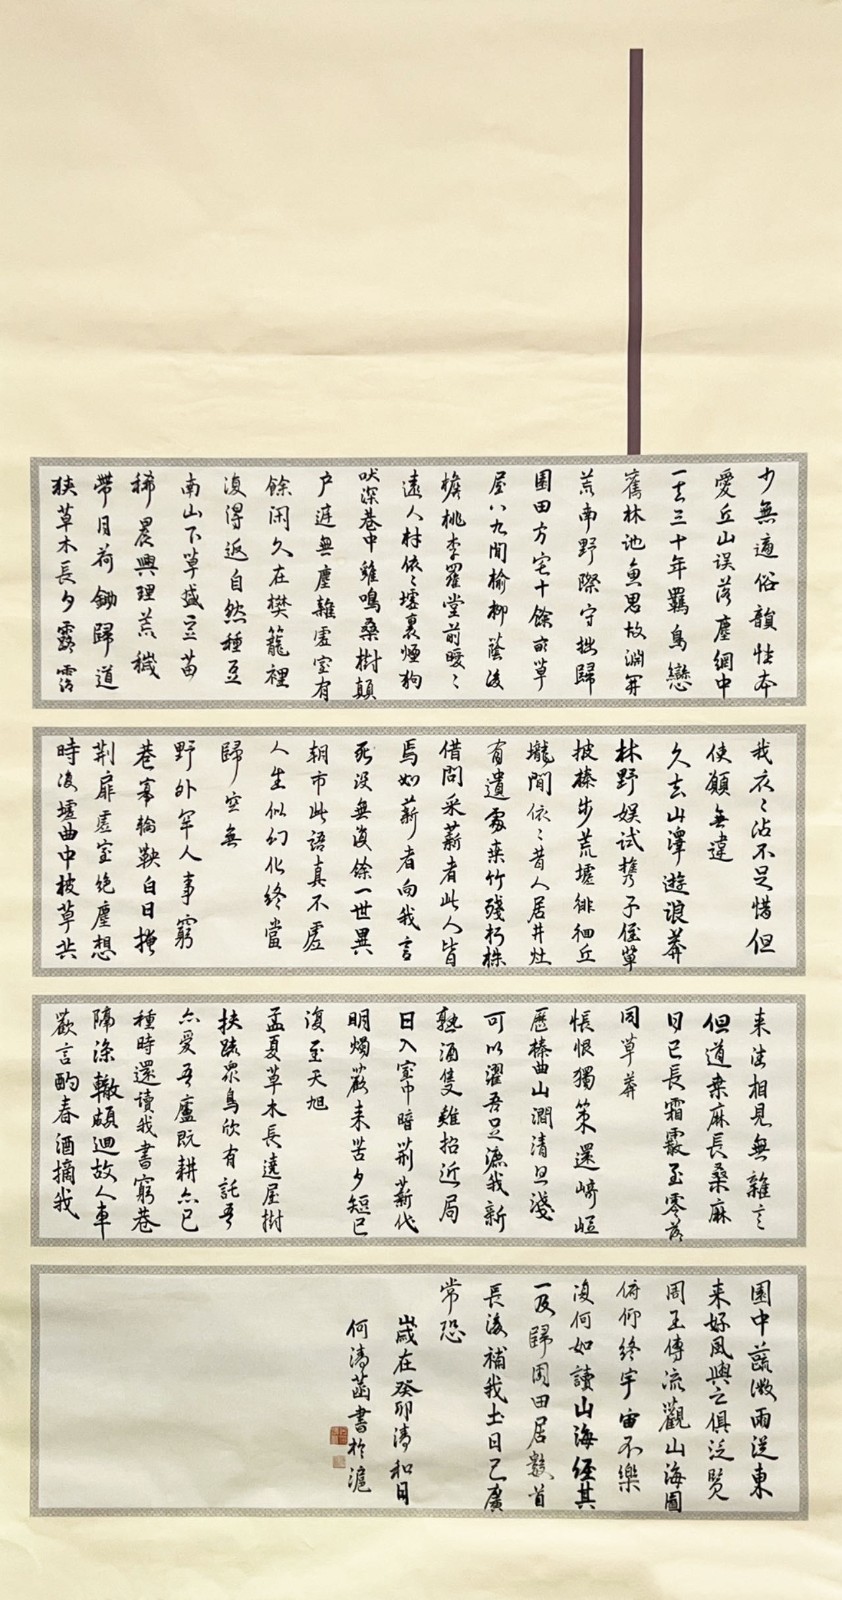 少無適俗韻性本
愛丘山误落塵網中
一去三十年羈鳥戀
舊林池魚思故淵開
荒南野際守拙歸
園田方宅十餘畝草
屋八九間榆柳蔭後
檐桃李羅堂前暧〻
遠人村依〻墟裏煙狗
吠深巷中雞鳴桑樹顛
户庭無塵雜虛室有
餘闲久在樊籠裡
復得返自然種豆
南山下草盛豆苗
稀晨興理荒穢
帶月荷鋤歸道
狹草木長夕露沾
我衣〻沾不足惜但
使願無違
久去山澤遊浪莽
林野娱试携子侄草
披榛步荒墟徘徊丘
壠間依〻昔人居井灶
有遺處桑竹殘朽株
借問采薪者此人皆
焉如薪者向我言
死没無復餘一世異
朝市此語真不虛
人生似幻化终當
歸空無
野外罕人事窮
巷寡輪鞅白日掩
荆扉虛室绝塵想
時復墟曲中披草共
来往相見無雜言
但道桑麻長桑麻
日已長霜霰至零落
同草莽
悵恨獨策還崎岖
歷榛曲山澗清且淺
可以濯吾足漉我新
熟酒隻雞招近局
日入室中暗荆薪代
明燭歡来苦夕短已
復至天旭
孟夏草木長遶屋樹
扶疏眾鳥欣有託吾
亦愛吾廬既耕亦已
種時還讀我書窮巷
隔深轍頗迴故人車
歡言酌春酒摘我
園中蔬微雨從東
来好風與之俱泛覽
周王傳流觀山海圖
俯仰终宇宙不樂
復何如讀山海經其
一及歸園田居數首
長後補我土日已廣
常恐
歲在癸卯清和月
何清菡書於滬